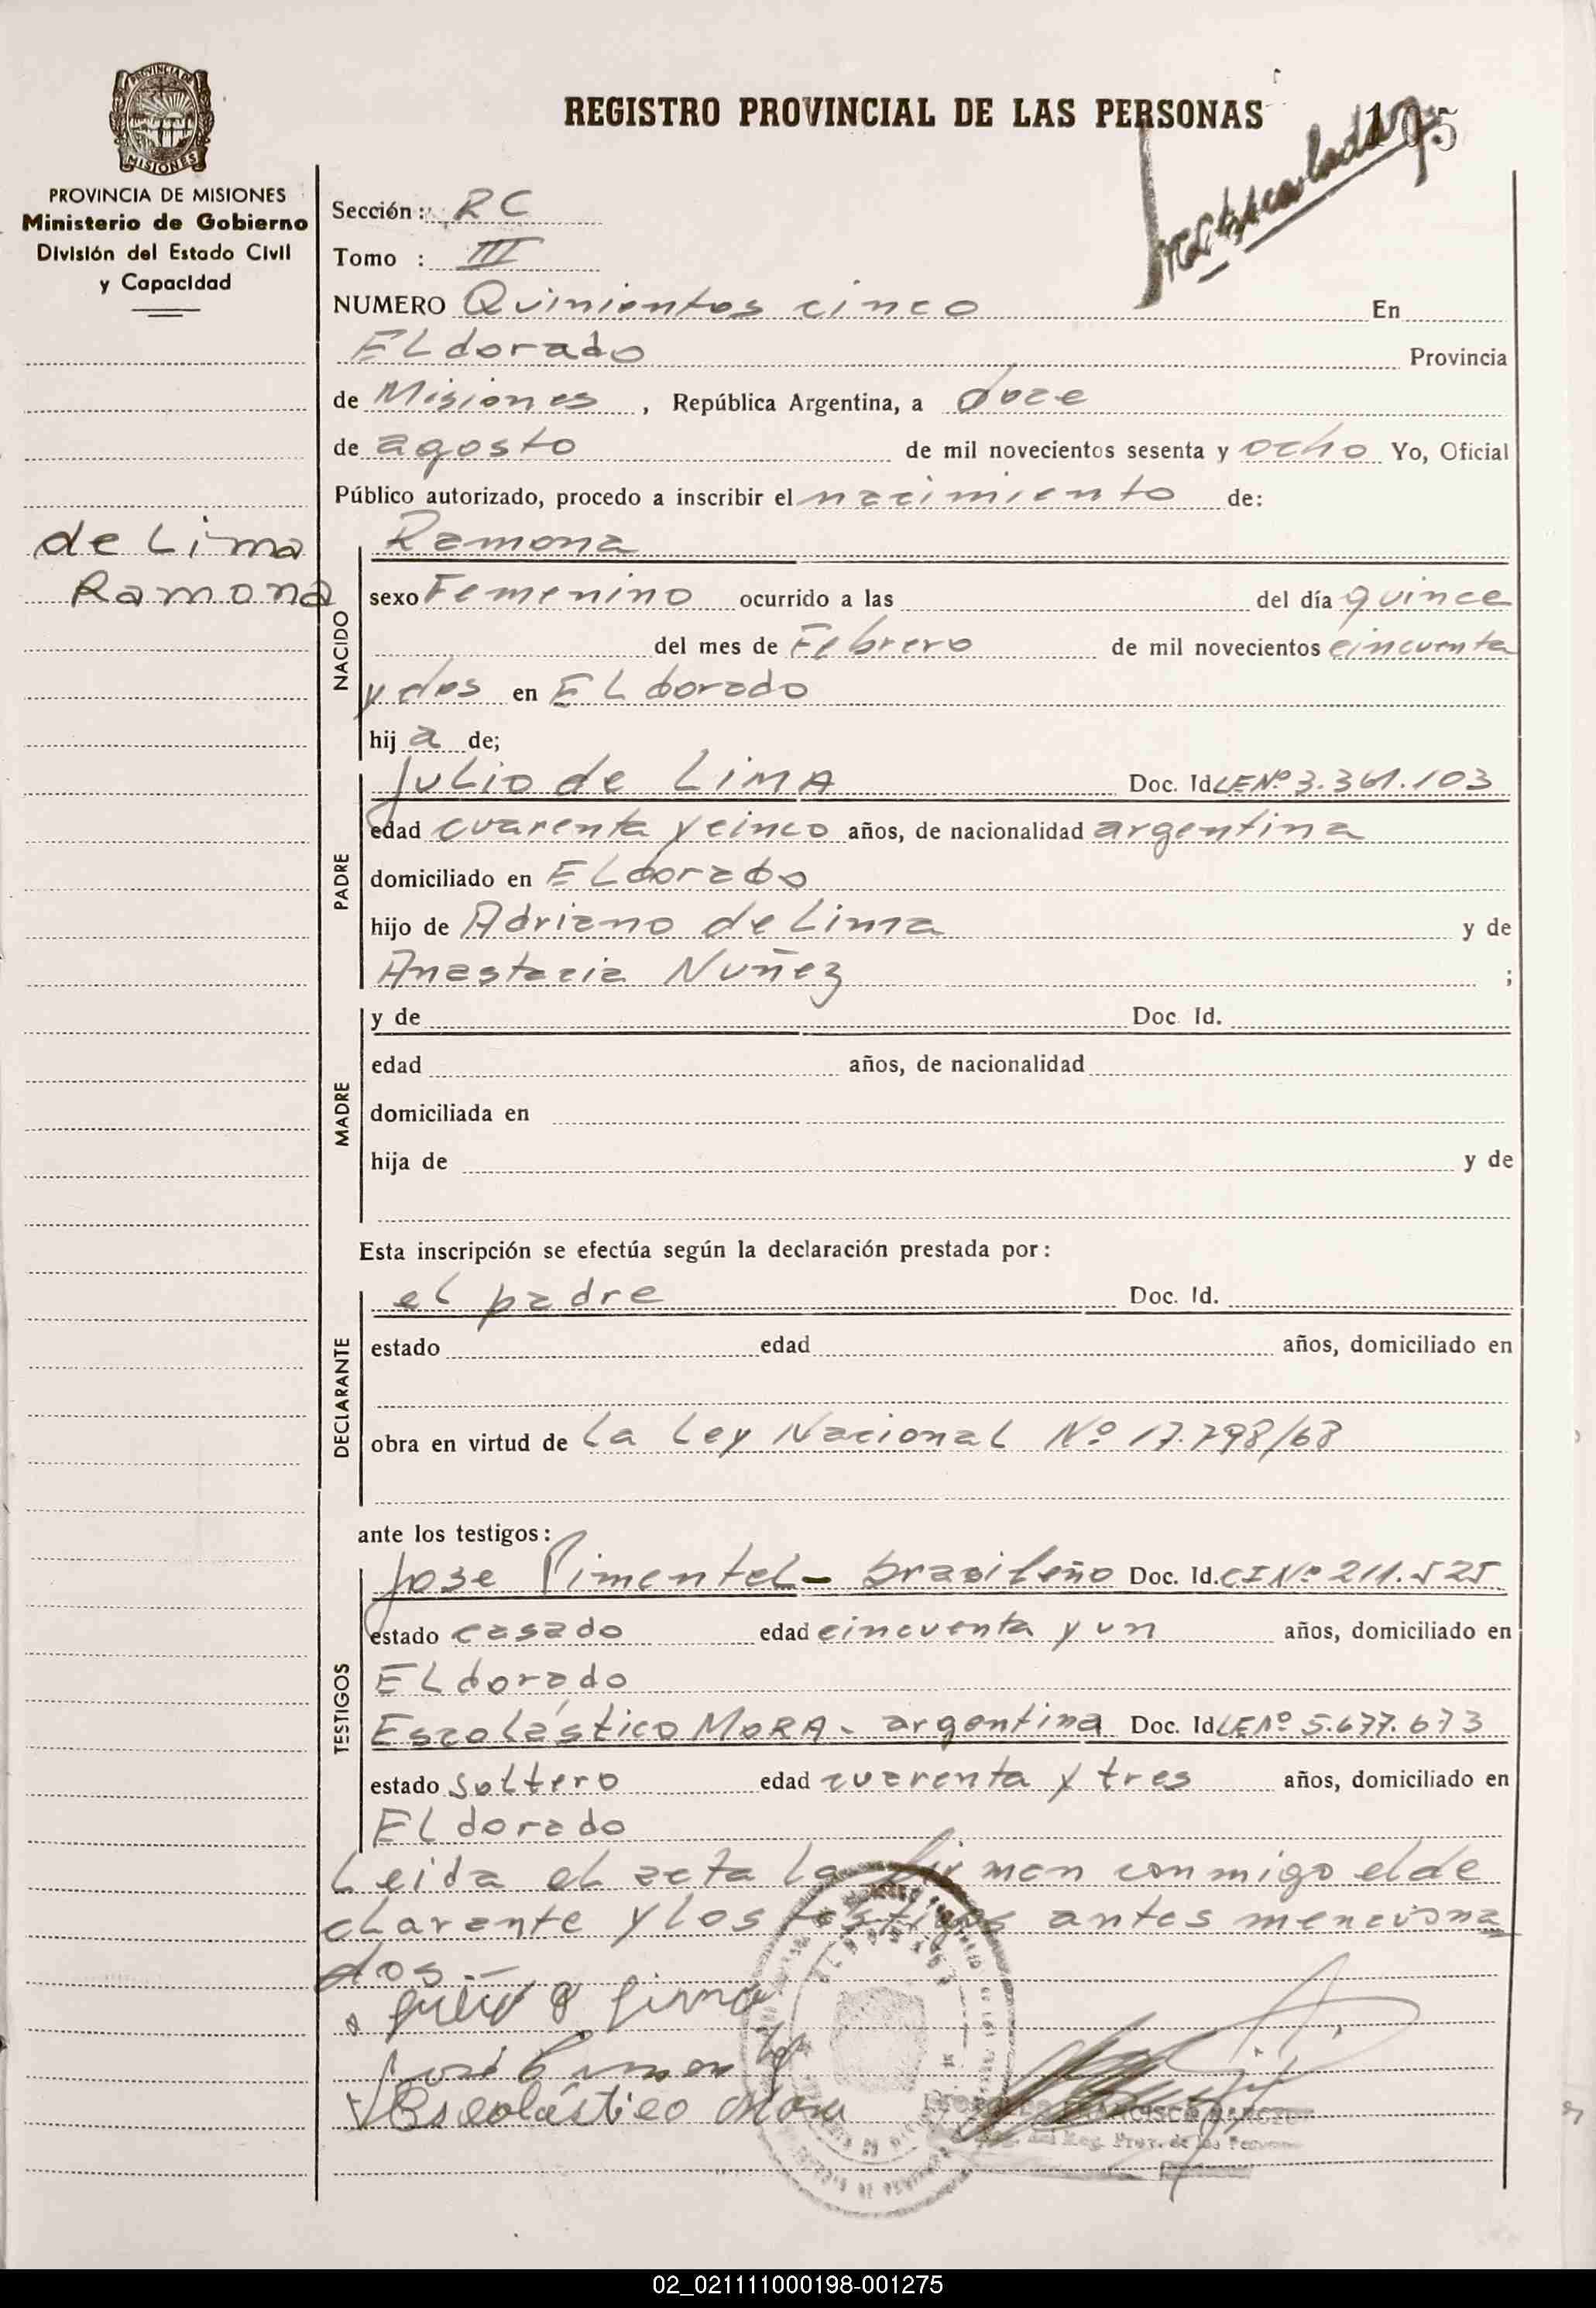 REGISTRO PROVINCIAL DE LAS PERSONAS
PROVINCIA DE MISIONES
Ministerio de Gobierno
División del Estado Civil
y Capacidad
Sección: RC
Tomo : III
NUMERO Quinientos cinco En
ELdorado Provincia
de Misiones, República Argentina, a doce
de agosto de mil novecientos sesenta y ocho Yo, Oficial
Público autorizado, procedo a inscribir el nacimiento de:
de Lima
Ramona
NACIDO
Ramona
sexo Femenino ocurrido a las del día quince
del mes de Febrero de mil novecientos cincuenta
y dos en ELdorado
hij a de;
PADRE
Julio de LimA Doc. Id LE Nº 3.361.103
edad cuarenta y cinco años, de nacionalidad argentina
domiciliado en ELdorado
hijo de Adriano de Lima y de
Anastacia Nuñez ;
MADRE
y de Doc. Id.
edad años, de nacionalidad
domiciliada en
hija de y de
Esta inscripción se efectúa según la declaración prestada por:
DECLARANTE
el padre Doc. Id.
estado edad años, domiciliado en
obra en virtud de La Ley Nacional Nº 17.798/68
ante los testigos:
TESTIGOS
Jose Pimentel - brasileño Doc. Id. CI Nº 211.525
estado casado edad cincuenta y un años, domiciliado en
ELdorado
Escolástico MoRA - argentina Doc. Id LE Nº 5.677.673
estado soltero edad cuarenta y tres años, domiciliado en
ELdorado
Leida el acta la firman conmigo el de
clarante y los testigos antes menciona
dos.-
Escolástico Mora
02_021111000198-001275